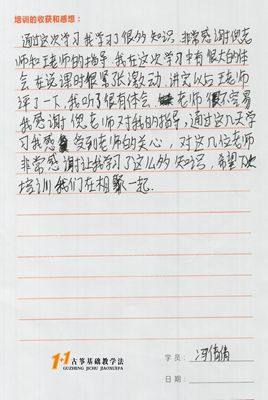 培训的收获和感想：
通过这次学习我学习了很多知识，非常感谢倪老
师和王老师的指导，我在这次学习中有很大的体
会在说课时很紧张激动，讲完以后王老师
评了一下，我听了很有体会，老师很不容易
我感谢倪老师对我的指导，通过这几天学
习我感受到老师的关心，对这几位老师
非常感谢让我学习了这么多的知识，希望下次
培训我们在相聚一起。
1+1 古筝基础教学法
GUZHENG JICHU JIAOXUEFA
学员：冯倩倩
日期：